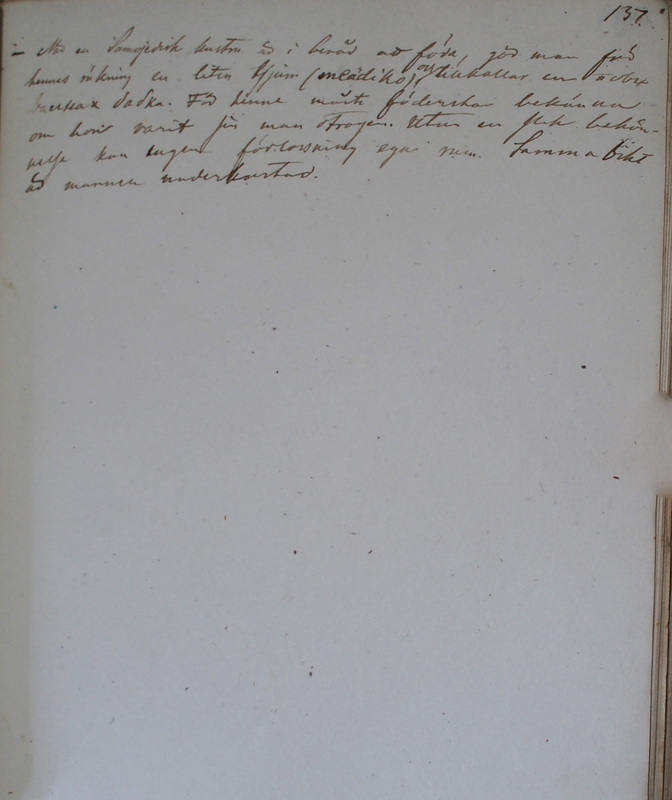 137.
– När en Samojedisk hustru är i beråd att föda, gör man för
hennes räkning en liten tjum och tillkallar en
бабка. För henne måste föderskan bekänna
om hon varit sin man otrogen. Utan en slik bekän-
nelse kan ingen förlossning ega rum. Samma bikt
är mannen underkastad.